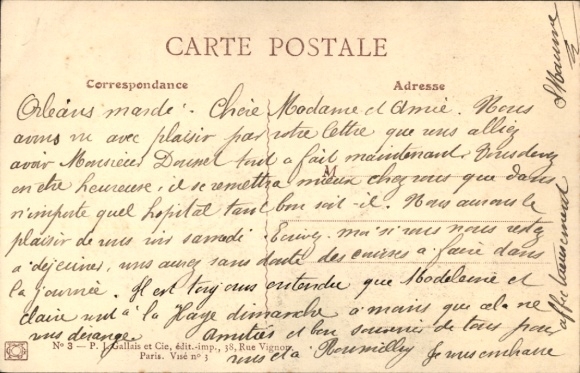 CARTE POSTALE
Correspondance
Adresse
Orléans mardi. Chère Madame et Amie. Nous
avons vu avec plaisir par votre lettre que vous alliez
avoir Monsieur tout à fait maintenant. Vous devez
en être heureuse, il se remettra mieux chez vous que dans
n'importe quel hopital tant bon soit-il. Nous aurons le
plaisir de vous voir samedi. Ecrivez-moi si vous nous restez
a déjeuner, vous aurez sans doute des courses à faire dans
la journée. Il est toujours entendu que Madeleine et
Claire vont à la dimanche à moins que cela ne
vous dérange. Amitiés et bon souvenir de tous pour
vous et à Je vous embrasse
affectueusement
M
Nº 3 — P. J. Gallais et Cie, édit.-imp., 38, Rue Vignon,
Paris. Visé nº 3